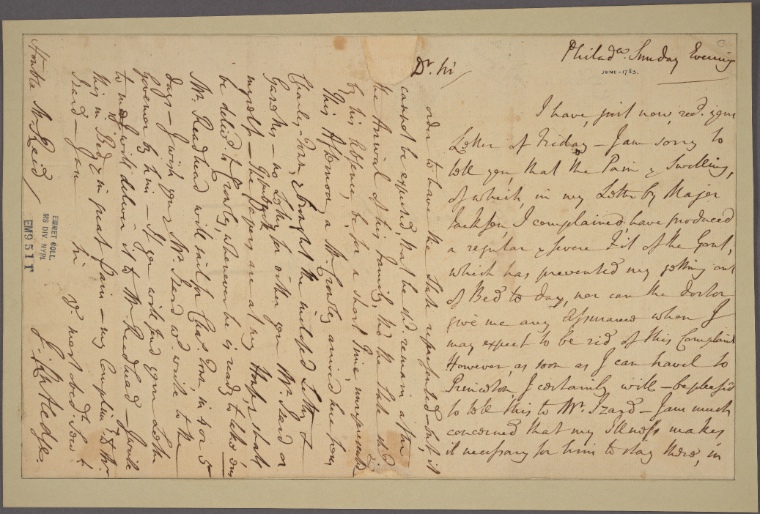 Philada. Sunday Evening
JUNE - 1783.
Dr. Sir
I have, just now, recd. your
Letter of Friday - I am sorry to
tell you, that the Pain & Swelling,
of which, in my Letter by Major
Jackson, I complained, have produced
a regular & severe Fit of the Gout,
which has prevented my getting out
of Bed to day, nor can the Doctor
give me any Assurance when I
may expect to be rid of this Complaint
However, as soon as I can travel to
Princeton, I certainly will - be pleased
to tell this to Mr. Izard - I am much
concerned that my Illness makes
it necessary for him to stay there, in
order to have the State represented - but it
cannot be expected that he shd. remain after
the Arrival of his Family, tho' the State shd.
by his Absence, be, for a short Time, unrepresented
This Afternoon, a Mr. Crowley arrived here from
Charles-Town, & brought the inclosed Letter &
Gazettes - no Letter for either you Mr. Izard or
myself - The Papers are at my House, & shall
be delivd. to Crowley whenever he is ready to take 'em
Mr. Readhead will sail for Chas. Town in 4 or 5
days - I wish you & Mr. Izard wd. write to the
Governor by him - If you will send your Letter
to me I will deliver it to Mr. Readhead - I write
this in Bed & in great Pain - my Complimts. to Mr.
Izard - I am Sir
yr. most obedt. Servt.
J. Rutledge.
Honble Mr. Reid
EMMET COLL.
MS. DIV. NYPL
EM9511